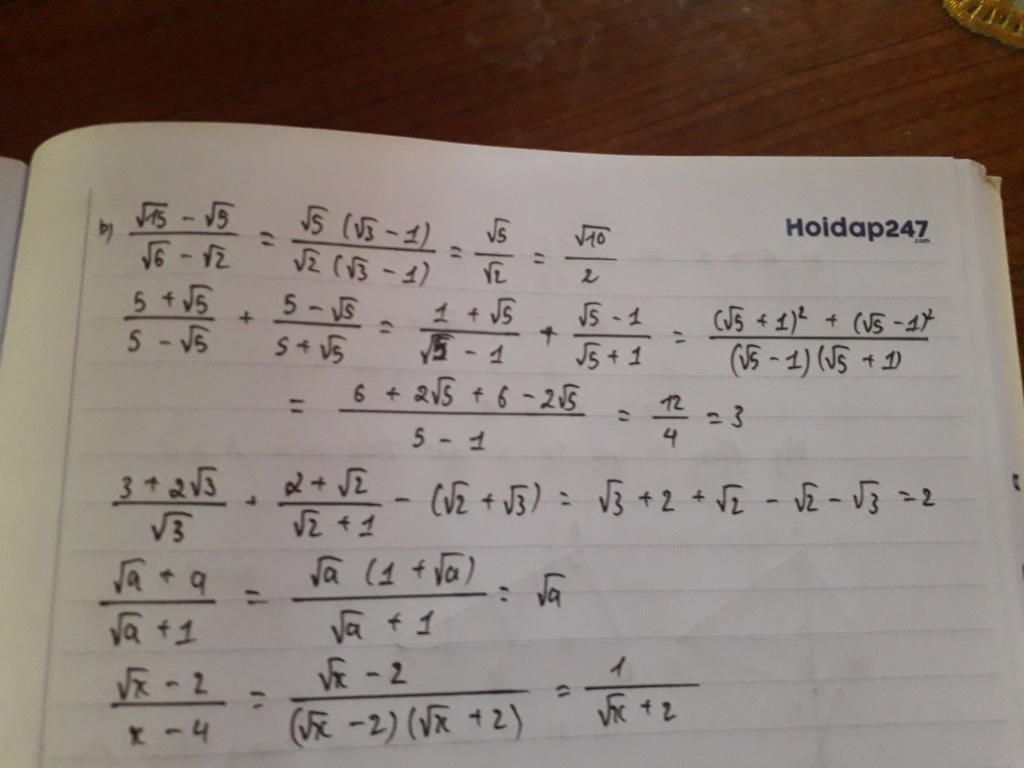 Hoidap247
.com
b) (√15 - √5)/(√6 - √2) = (√5 (√3 - 1))/(√2 (√3 - 1)) = √5/√2 = √10/2
(5 + √5)/(5 - √5) + (5 - √5)/(5 + √5) = (1 + √5)/(√5 - 1) + (√5 - 1)/(√5 + 1) = ((√5 + 1)² + (√5 - 1)²)/((√5 - 1)(√5 + 1))
= (6 + 2√5 + 6 - 2√5)/(5 - 1) = 12/4 = 3
(3 + 2√3)/√3 + (2 + √2)/(√2 + 1) - (√2 + √3) = √3 + 2 + √2 - √2 - √3 = 2
(√a + a)/(√a + 1) = (√a (1 + √a))/(√a + 1) = √a
(√x - 2)/(x - 4) = (√x - 2)/((√x - 2)(√x + 2)) = 1/(√x + 2)